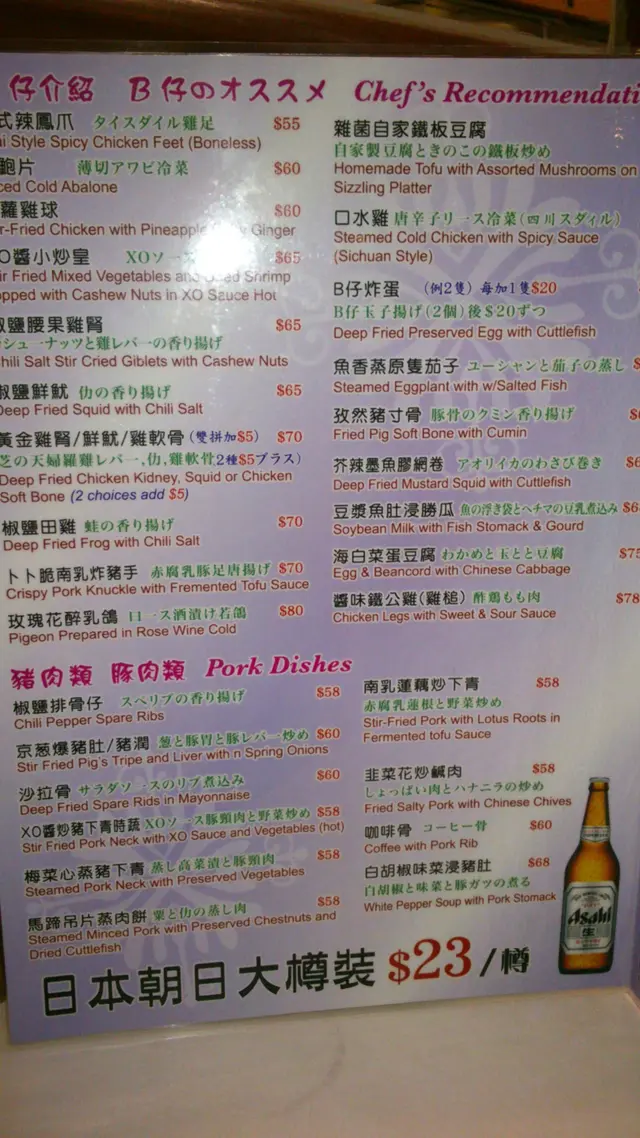 仔介紹 B仔のオススメ Chef's Recommendati
式辣鳳爪 タイスダイル雞足 $55
ai Style Spicy Chicken Feet (Boneless)
鮑片 薄切アワビ冷菜 $60
ced Cold Abalone
蘿雞球 $60
ir-Fried Chicken with Pineapple Ginger
O醬小炒皇 XOソース $65
tir Fried Mixed Vegetables and Shrimp
opped with Cashew Nuts in XO Sauce Hot
椒鹽腰果雞腎 $65
シューナッツと雞レバーの香り揚げ
Chili Salt Stir Cried Giblets with Cashew Nuts
椒鹽鮮魷 仂の香り揚げ $65
Deep Fried Squid with Chili Salt
黃金雞腎/鮮魷/雞軟骨 (雙拼加$5) $70
芝の天婦羅雞レバー,仂,雞軟骨2種$5プラス)
Deep Fried Chicken Kidney, Squid or Chicken
Soft Bone (2 choices add $5)
椒鹽田雞 蛙の香り揚げ $70
Deep Fried Frog with Chili Salt
卜卜脆南乳炸豬手 赤腐乳豚足唐揚げ $70
Crispy Pork Knuckle with Fremented Tofu Sauce
玫瑰花醉乳鴿 ロース酒漬け若鴿 $80
Pigeon Prepared in Rose Wine Cold
雜菌自家鐵板豆腐
自家製豆腐ときのこの鐵板炒め
Homemade Tofu with Assorted Mushrooms on
Sizzling Platter
口水雞 唐辛子リース冷菜(四川スダィル)
Steamed Cold Chicken with Spicy Sauce
(Sichuan Style)
B仔炸蛋 (例2隻) 每加1隻$20
B仔玉子揚げ(2個)後$20ずつ
Deep Fried Preserved Egg with Cuttlefish
魚香蒸原隻茄子 ユーシャンと茄子の蒸し
Steamed Eggplant with w/Salted Fish
孜然豬寸骨 豚骨のクミン香り揚げ
Fried Pig Soft Bone with Cumin
芥辣墨魚膠網卷 アオリイカのわさび巻き
Deep Fried Mustard Squid with Cuttlefish
豆漿魚肚浸勝瓜 魚の浮き袋とヘチマの豆乳煮込み
Soybean Milk with Fish Stomack & Gourd
海白菜蛋豆腐 わかめと玉とと豆腐
Egg & Beancord with Chinese Cabbage
醬味鐵公雞(雞槌) 酢鶏もも肉 $78
Chicken Legs with Sweet & Sour Sauce
豬肉類 豚肉類 Pork Dishes
椒鹽排骨仔 スペリブの香り揚げ $58
Chili Pepper Spare Ribs
京葱爆豬肚/豬潤 葱と豚胃と豚レバー炒め $60
Stir Fried Pig's Tripe and Liver with n Spring Onions
沙拉骨 サラダソースのリブ煮込み $60
Deep Fried Spare Rids in Mayonnaise
XO醬炒豬下青時蔬 XOソース豚頸肉と野菜炒め $58
Stir Fried Pork Neck with XO Sauce and Vegetables (hot)
梅菜心蒸豬下青 蒸し高菜漬と豚頸肉 $58
Steamed Pork Neck with Preserved Vegetables
馬蹄吊片蒸肉餅 粟と仂の蒸し肉 $58
Steamed Minced Pork with Preserved Chestnuts and
Dried Cuttlefish
南乳蓮藕炒下青 $58
赤腐乳蓮根と野菜炒め
Stir-Fried Pork with Lotus Roots in
Fermented tofu Sauce
韭菜花炒鹹肉 $58
しょっぱい肉とハナニラの炒め
Fried Salty Pork with Chinese Chives
咖啡骨 コーヒー骨 $60
Coffee with Pork Rib
白胡椒味菜浸豬肚 $68
白胡椒と味菜と豚ガツの煮る
White Pepper Soup with Pork Stomack
Asahi
生
日本朝日大樽裝 $23/樽